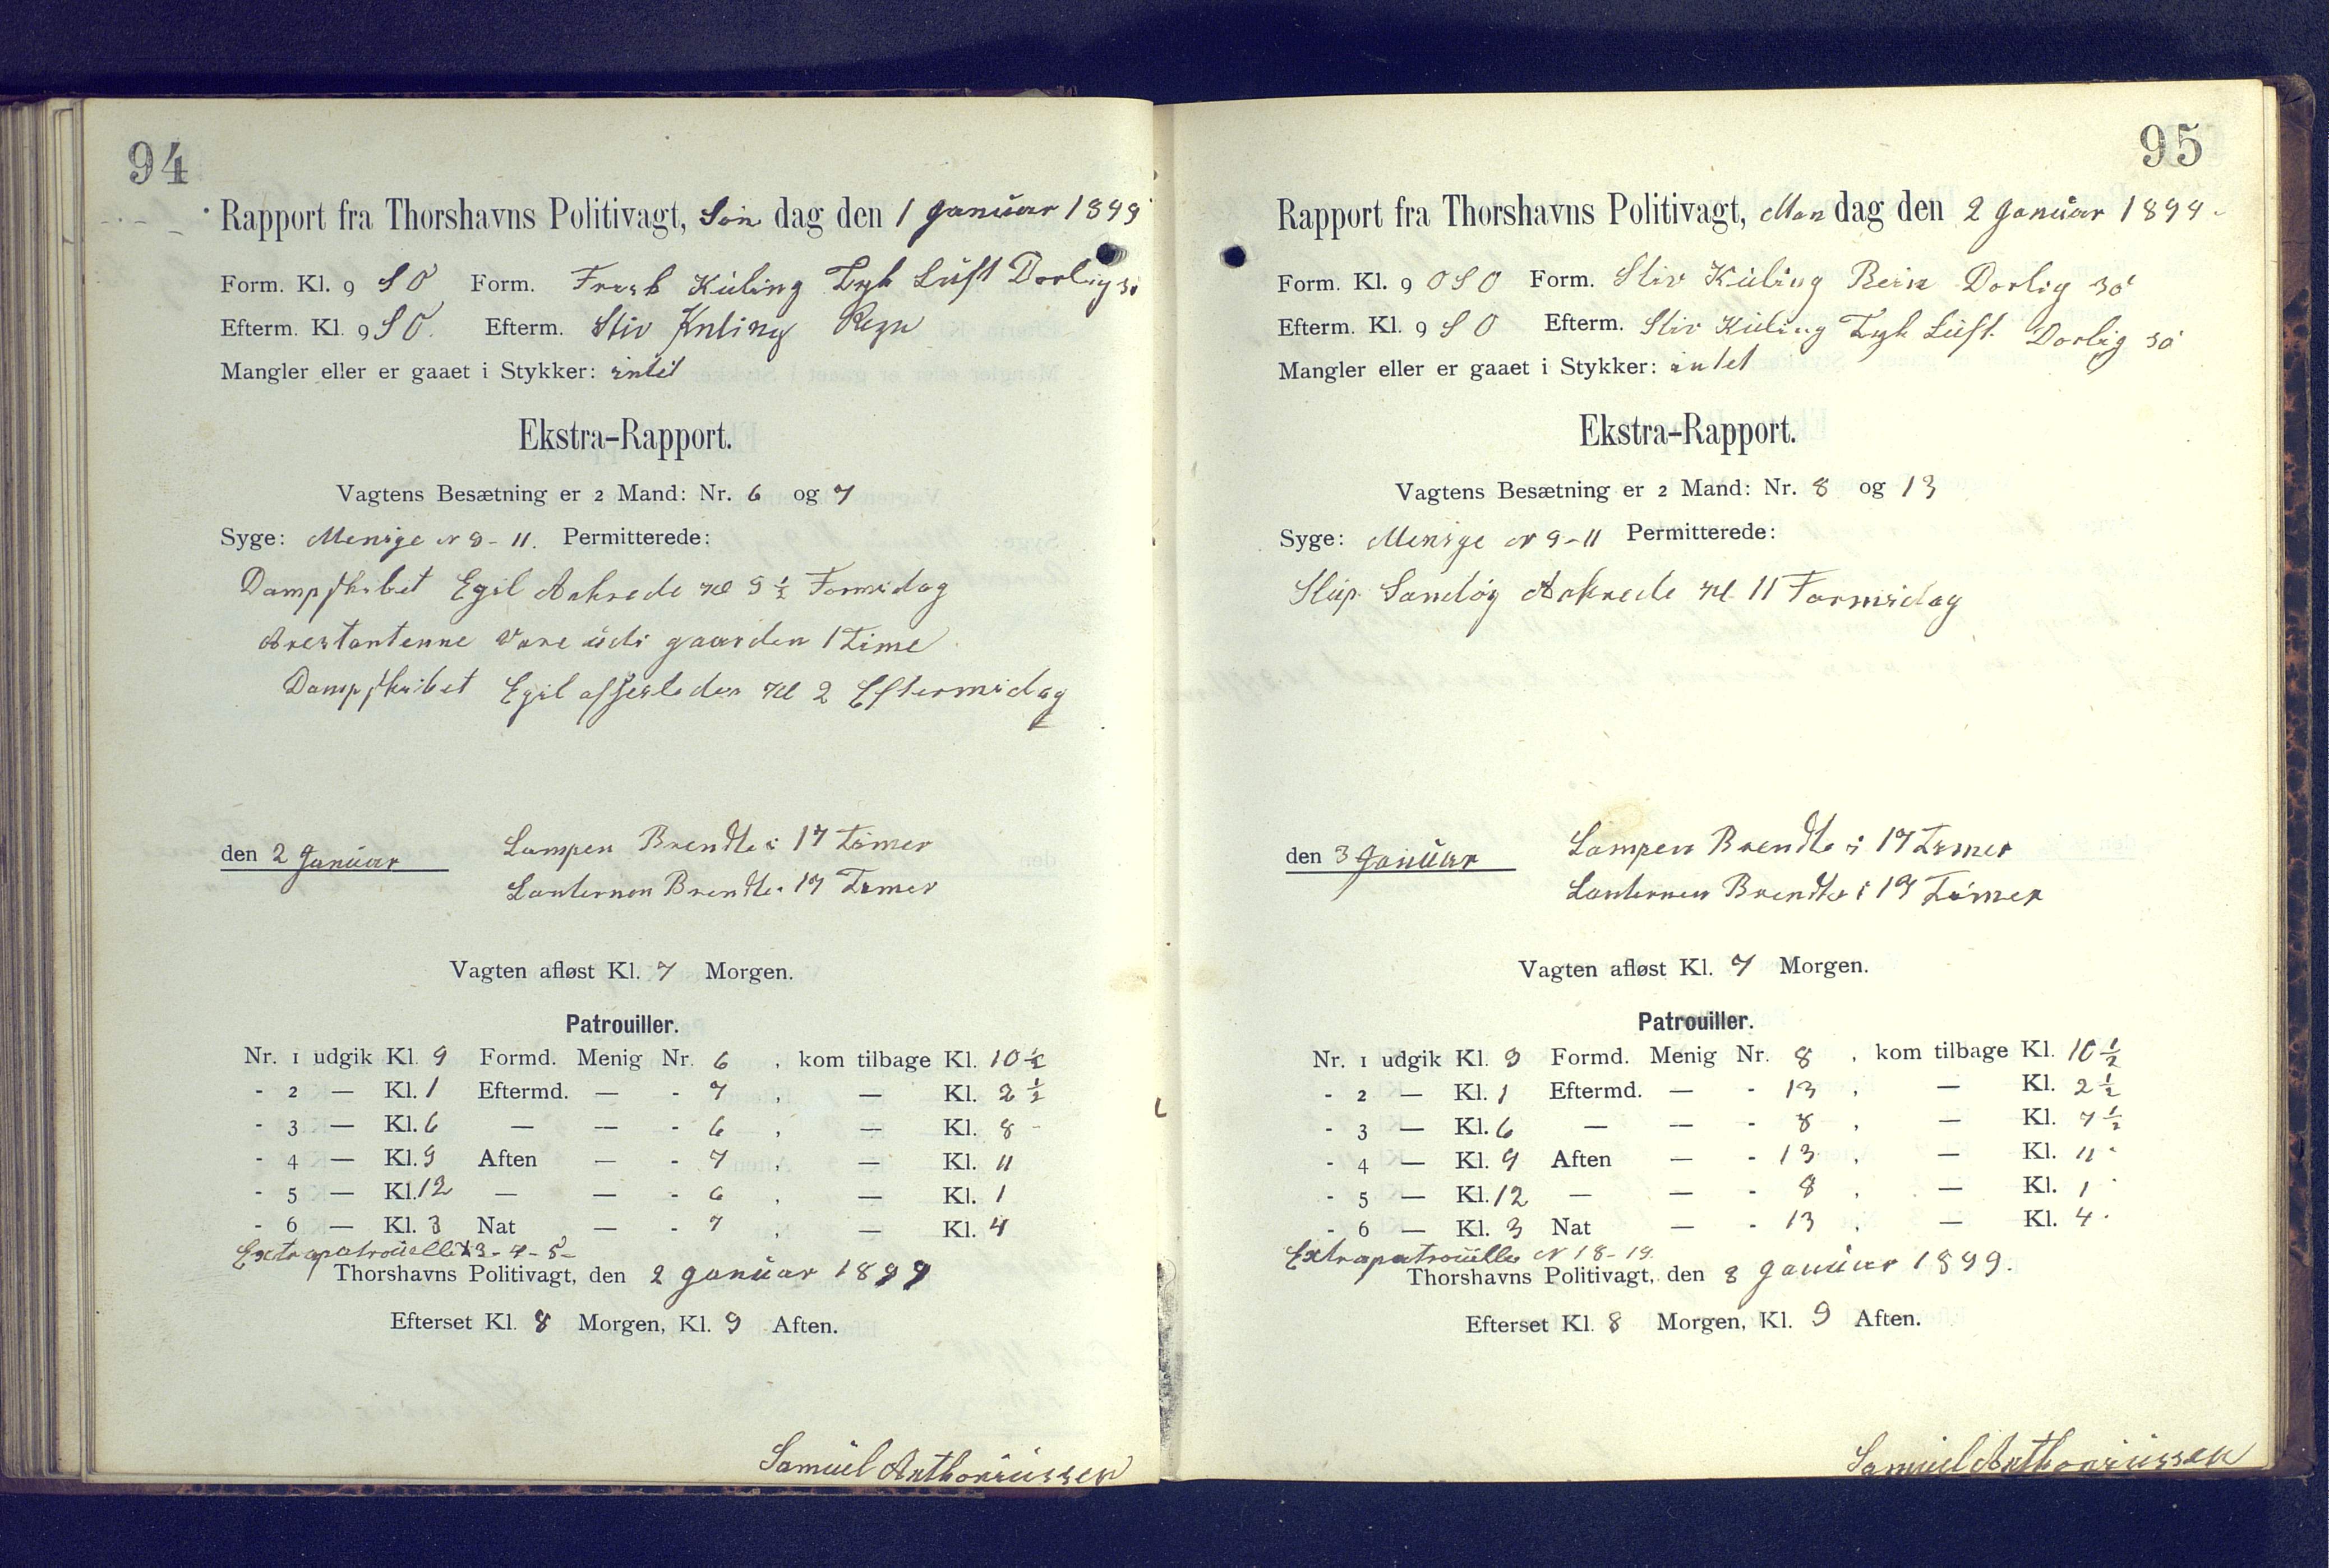 94
Rapport fra Thorshavns Politivagt, Søn dag den 1 Januar 1899
Form. Kl. 9 S O Form. Frisk Kuling Tyk Luft Dorlig sö
Efterm. Kl. 9 S O. Efterm. Stiv Kuling Regn
Mangler eller er gaaet i Stykker: intet
Ekstra-Rapport.
Vagtens Besætning er 2 Mand: Nr. 6 og 7
Syge: Menige N 9 - 11. Permitterede:
Dampskibet Egil Ankrede Kl 9 ½ Formidag
Arestantenne Vare udi gaarden 1 Time
Dampskibet Egil afseilede Kl 2 Eftermidag
Lampen Brendte i 17 Timer
den 2 Januar
Lanternen Brendte i 17 Timer
Vagten afløst Kl. 7 Morgen.
Patrouiller.
Nr. 1 udgik Kl. 9 Formd. Menig Nr. 6 , kom tilbage Kl. 10 ½
- 2 — Kl. 1 Eftermd. — - 7 , — Kl. 2 ½
- 3 — Kl. 6 — — - 6 , — Kl. 8 -
- 4 — Kl. 9 Aften — - 7 , — Kl. 11
- 5 — Kl. 12 — — - 6 , — Kl. 1
- 6 — Kl. 3 Nat — - 7 , — Kl. 4
Extrapatrouille N 3 - 4 - 5 -
Thorshavns Politivagt, den 2 Januar 1899
Efterset Kl. 8 Morgen, Kl. 9 Aften.
Samuel Anthoniussen
95
Rapport fra Thorshavns Politivagt, Man dag den 2 Januar 1899 -
Form. Kl. 9 O S O Form. Stiv Kuling Rein Dorlig sö
Efterm. Kl. 9 S O Efterm. Stiv Kuling Tyk Luft. Dorlig sö
Mangler eller er gaaet i Stykker: intet
Ekstra-Rapport.
Vagtens Besætning er 2 Mand: Nr. 8 og 13
Syge: Menige N 9 - 11 Permitterede:
Slup. Sandöy Ankrede Kl 11 Formidag
Lampen Brendte i 17 Timer
den 3 Januar
Lanternen Brendte i 17 Timer
Vagten afløst Kl. 7 Morgen.
Patrouiller.
Nr. 1 udgik Kl. 9 Formd. Menig Nr. 8 , kom tilbage Kl. 10 ½
- 2 — Kl. 1 Eftermd. — - 13 , — Kl. 2 ½
- 3 — Kl. 6 — — - 8 , — Kl. 7 ½
- 4 — Kl. 9 Aften — - 13 , — Kl. 11
- 5 — Kl. 12 — — - 8 , — Kl. 1
- 6 — Kl. 3 Nat — - 13 , — Kl. 4.
Extrapatrouille N 18 - 19.
Thorshavns Politivagt, den 3 Januar 1899.
Efterset Kl. 8 Morgen, Kl. 9 Aften.
Samuel Anthoniussen